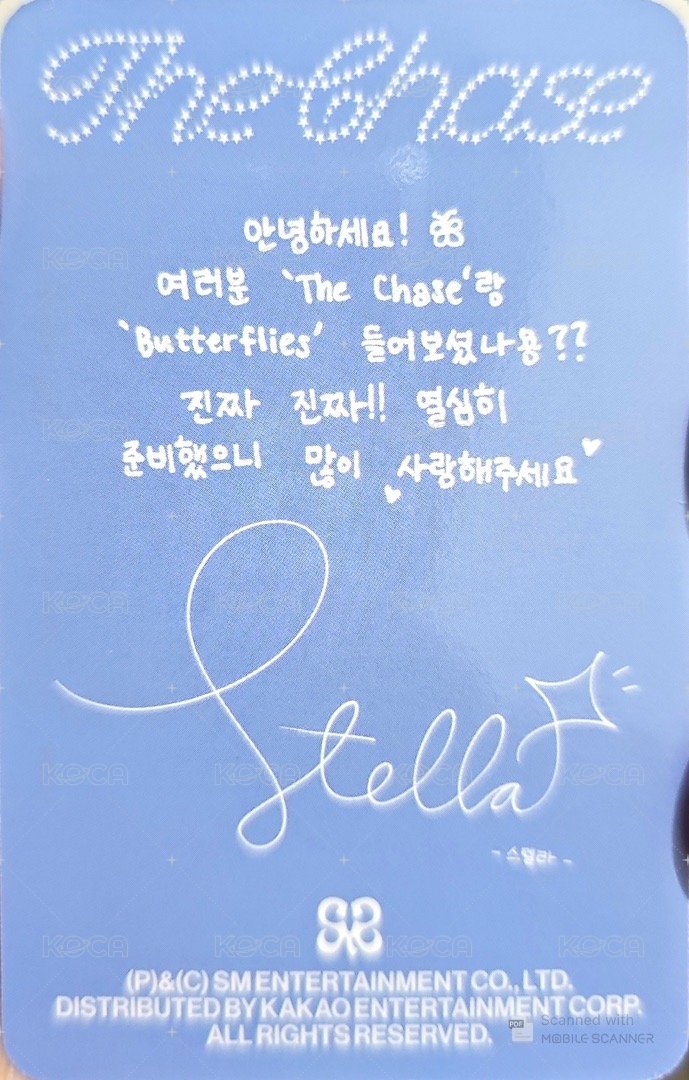 The Chase
안녕하세요!
여러분 'The Chase'랑
'Butterflies' 들어보셨나용??
진짜 진짜!! 열심히
준비했으니 많이 사랑해주세요
Stella
- 스텔라 -
(P)&(C) SM ENTERTAINMENT CO., LTD.
DISTRIBUTED BY KAKAO ENTERTAINMENT CORP.
ALL RIGHTS RESERVED.
KOCA KOCA KOCA KOCA
KOCA KOCA KOCA KOCA
KOCA KOCA KOCA KOCA
KOCA KOCA KOCA KOCA
KOCA KOCA KOCA KOCA
PDF Scanned with
MOBILE SCANNER